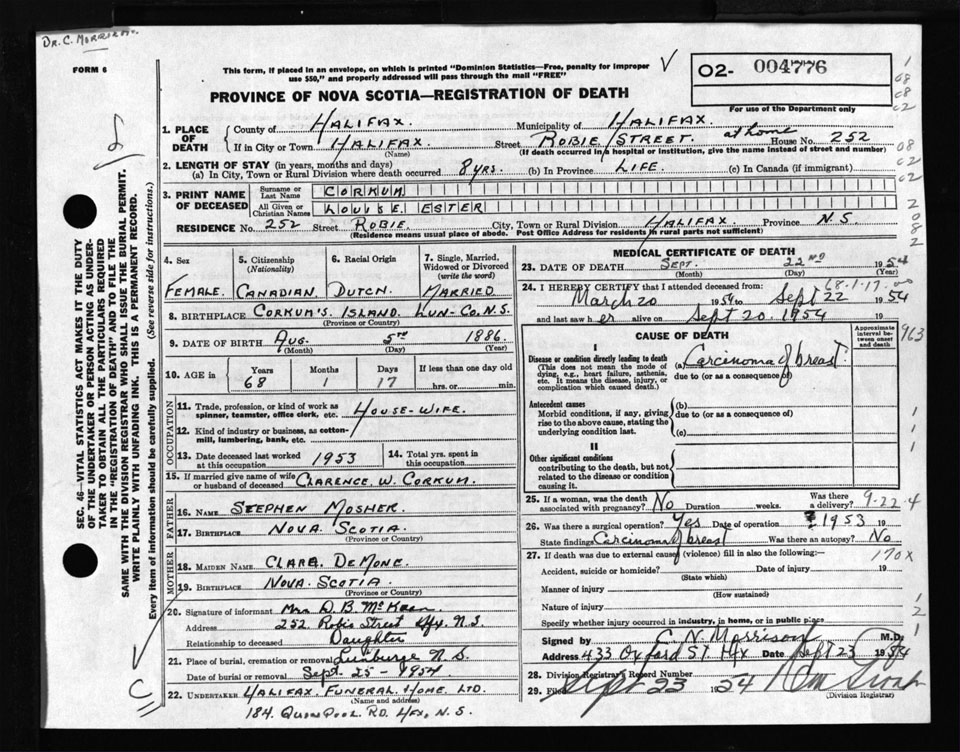 DR. C. MORRISON.
FORM 6
This form, if placed in an envelope, on which is printed "Dominion Statistics—Free, penalty for improper
use $50," and properly addressed will pass through the mail "FREE"
PROVINCE OF NOVA SCOTIA—REGISTRATION OF DEATH
02- 004776
For use of the Department only
1. PLACE OF DEATH { County of HALIFAX. Municipality of HALIFAX.
If in City or Town HALIFAX. (Name) Street ROBIE STREET. at home House No. 252
(If death occurred in a hospital or institution, give the name instead of street and number)
2. LENGTH OF STAY (in years, months and days)
(a) In City, Town or Rural Division where death occurred 8 yrs. (b) In Province LIFE. (c) In Canada (if immigrant)
3. PRINT NAME OF DECEASED { Surname or Last Name CORKUM
All Given or Christian Names LOUISE ESTER
RESIDENCE No. 252 Street ROBIE. City, Town or Rural Division HALIFAX. Province N.S.
(Residence means usual place of abode. Post Office Address for residents in rural parts not sufficient)
4. Sex FEMALE.
5. Citizenship (Nationality) CANADIAN
6. Racial Origin DUTCH.
7. Single, Married, Widowed or Divorced (write the word) MARRIED
8. BIRTHPLACE CORKUM'S ISLAND. LUN-CO. N.S.
(Province or Country)
9. DATE OF BIRTH AUG. (Month) 5TH (Day) 1886. (Year)
10. AGE in { Years 68 Months 1 Days 17 If less than one day old
hrs. or min.
OCCUPATION
11. Trade, profession, or kind of work as spinner, teamster, office clerk, etc. HOUSE-WIFE.
12. Kind of industry or business, as cotton-mill, lumbering, bank, etc.
13. Date deceased last worked at this occupation 1953
14. Total yrs. spent in this occupation
15. If married give name of wife or husband of deceased CLARENCE W. CORKUM.
FATHER
16. Name STEPHEN MOSHER
17. Birthplace NOVA SCOTIA.
(Province or Country)
MOTHER
18. MAIDEN NAME CLARA DEMONE
19. Birthplace NOVA SCOTIA.
(Province or Country)
20. Signature of informant Mrs D. B. McKean
Address 252 Robie Street Hfx. N.S
Relationship to deceased Daughter
21. Place of burial, cremation or removal Lunenburg N.S.
Date of burial or removal Sept. 25 - 1954
22. UNDERTAKER HALIFAX FUNERAL HOME LTD.
(Name and address)
184 QUINPOOL RD. HFX, N.S.
MEDICAL CERTIFICATE OF DEATH
23. DATE OF DEATH SEPT. (Month) 22ND (Day) 1954 (Year)
68-1-17-00
24. I HEREBY CERTIFY that I attended deceased from:
March 20 1954 to Sept 22 1954
and last saw her alive on Sept 20 1954
CAUSE OF DEATH
Approximate interval between onset and death
963
I
Disease or condition directly leading to death (a) Carcinoma of breast.
(This does not mean the mode of dying, e.g., heart failure, asthenia, etc. It means the disease, injury, or complication which caused death.)
due to (or as a consequence of)
Antecedent causes
Morbid conditions, if any, giving rise to the above cause, stating the underlying condition last.
(b)
due to (or as a consequence of)
(c)
II
Other significant conditions
contributing to the death, but not related to the disease or condition causing it.
25. If a woman, was the death associated with pregnancy? No Duration weeks. Was there a delivery?
9-22-4
26. Was there a surgical operation? Yes Date of operation 1953 19
State findings Carcinoma of breast Was there an autopsy? No
27. If death was due to external causes (violence) fill in also the following:—
170X
Accident, suicide or homicide? Date of injury 19
(State which)
Manner of injury
(How sustained)
Nature of injury
Specify whether injury occurred in industry, in home, or in public place
Signed by C. N. Morrison M.D.
Address 433 Oxford ST. Hfx Date Sept 23 1954
28. Division Registrar's Record Number
29. Filed Sept 23 1954
(Division Registrar)
SEC. 46—VITAL STATISTICS ACT MAKES IT THE DUTY
OF THE UNDERTAKER OR PERSON ACTING AS UNDER-
TAKER TO OBTAIN ALL THE PARTICULARS REQUIRED
IN THE "REGISTRATION OF DEATH" AND TO FILE THE
SAME WITH THE DIVISION REGISTRAR WHO SHALL ISSUE THE BURIAL PERMIT.
WRITE PLAINLY WITH UNFADING INK. THIS IS A PERMANENT RECORD.
Every item of information should be carefully supplied. (See reverse side for instructions.)